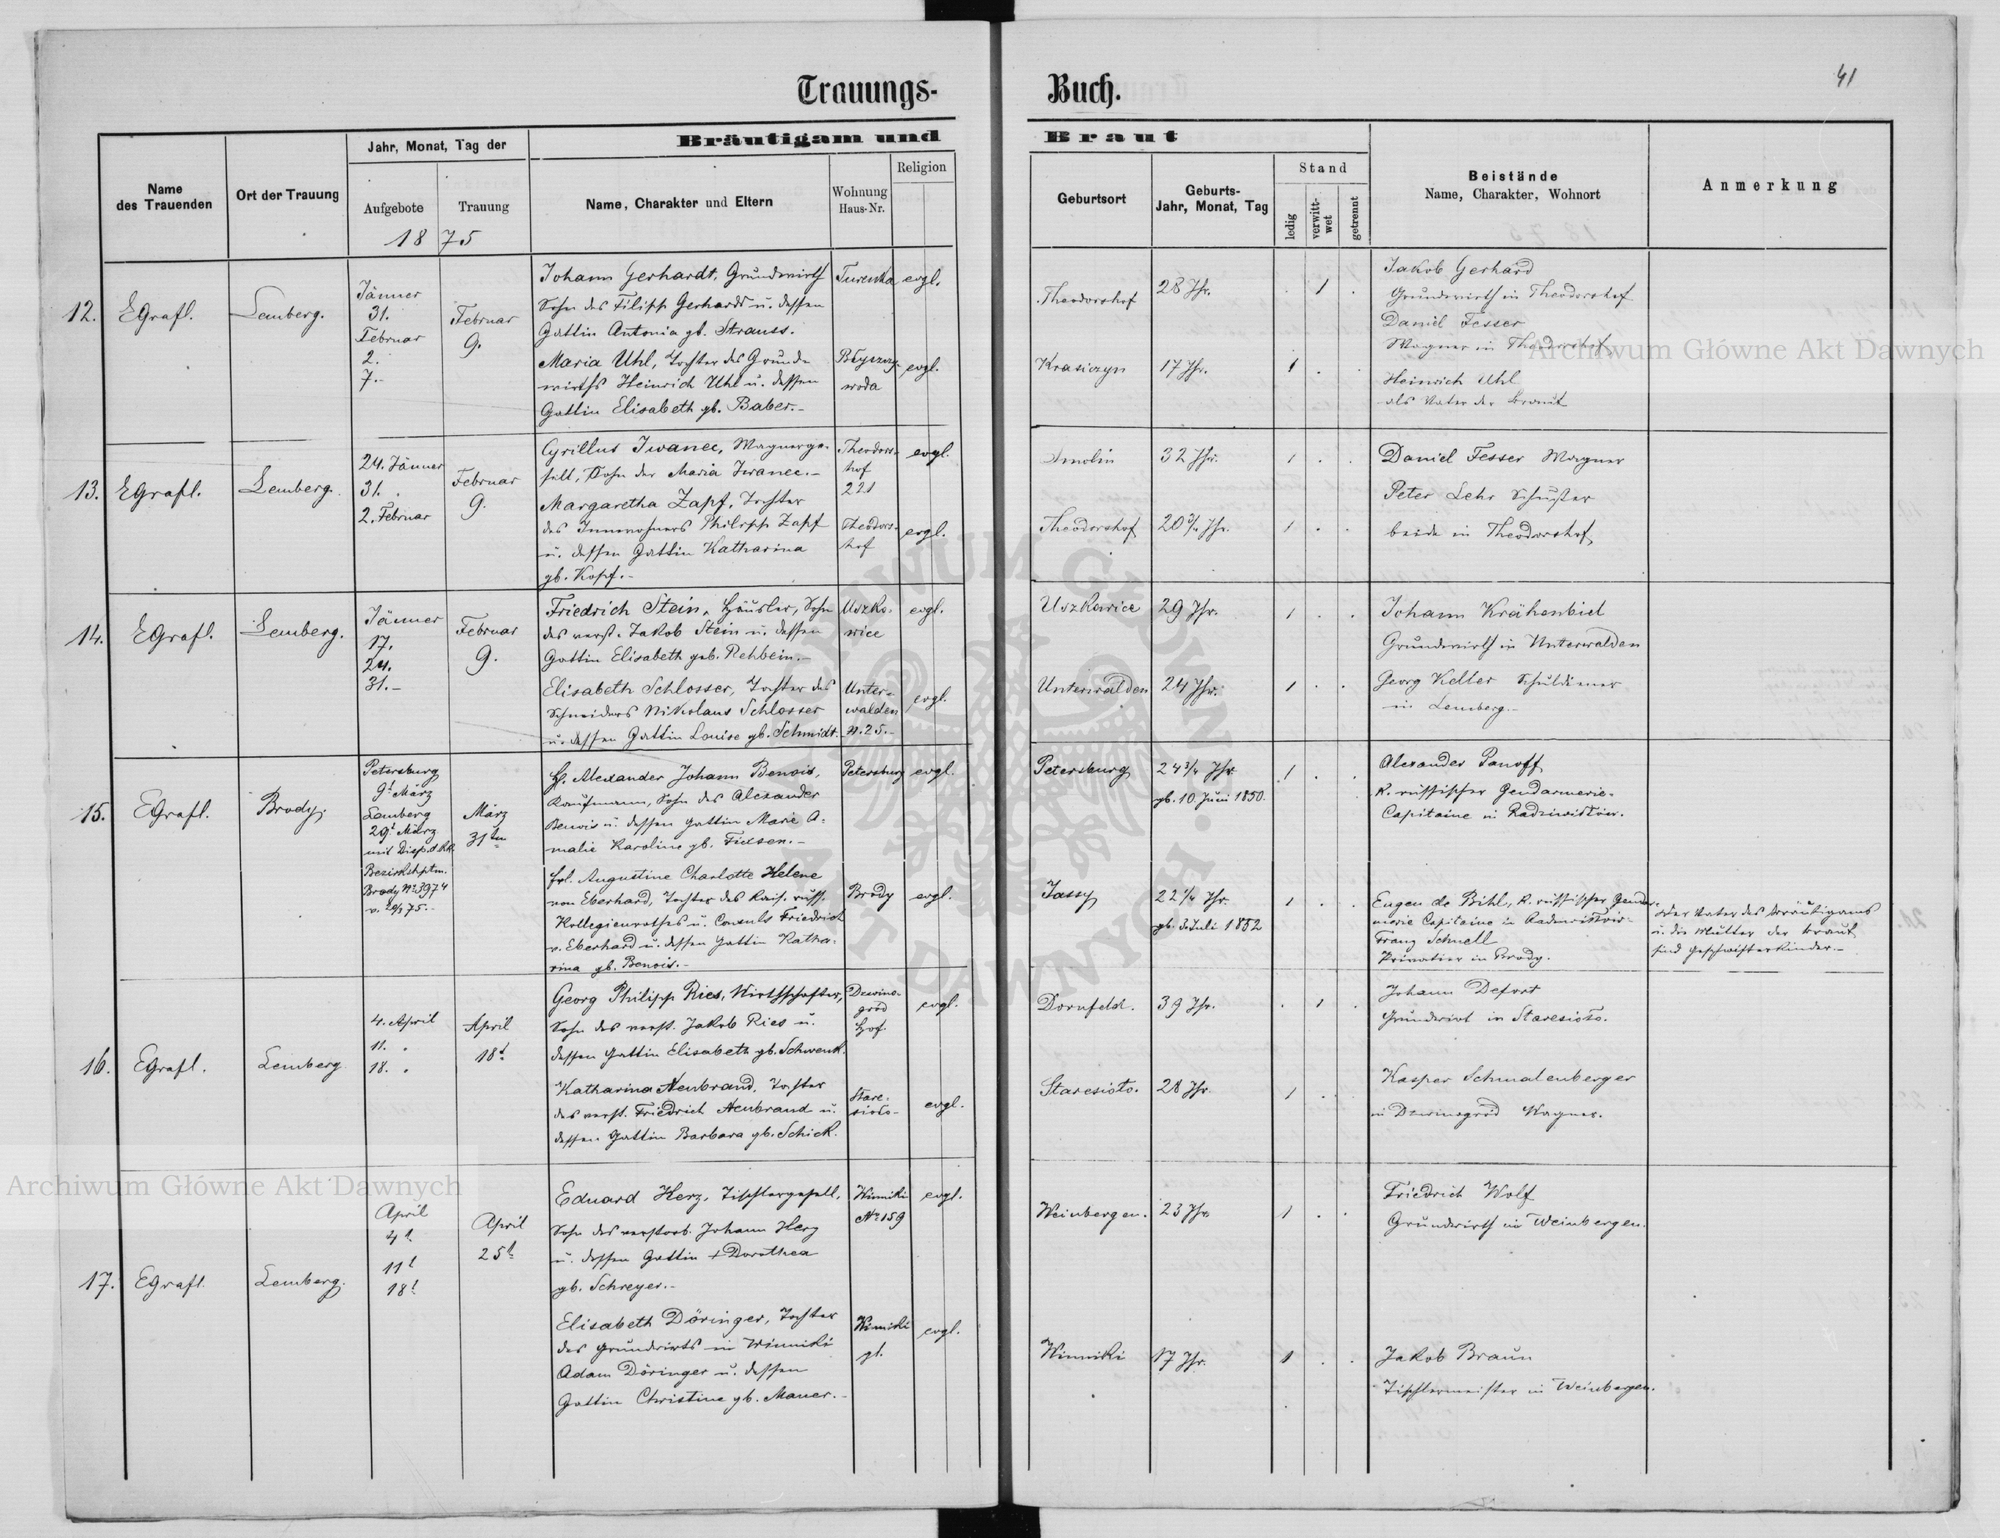 41
Trauungs- Buch.
Bräutigam und Braut
Name des Trauenden
Ort der Trauung
Jahr, Monat, Tag der
Aufgebote
Trauung
1875
Name, Charakter und Eltern
Wohnung Haus-Nr.
Religion
Geburtsort
Geburts- Jahr, Monat, Tag
Stand
ledig
verwittwet
getrennt
Beistände
Name, Charakter, Wohnort
Anmerkung
12.
EGrafl.
Lemberg.
Jänner
31.
Februar
2.
7.-
Februar
9.
Johann Gerhardt, Grundwirth
Sohn des Filipp Gerhardt u. dessen
Gattin Antonia gb. Strauss.
Turenka
evgl.
Maria Uhl, Tochter des Grund-
wirths Heinrich Uhl u. dessen
Gattin Elisabeth gb. Baber.-
Błyszczy-
woda
evgl.
Theodorshof
28 Jhr.
1
Krasiczyn
17 Jhr.
1
Jakob Gerhard
Grundwirth in Theodorshof
Daniel Fesser
Wagner in Theodorshof
Heinrich Uhl
als Vater der Braut
13.
EGrafl.
Lemberg.
24. Jänner
31. "
2. Februar
Februar
9.
Cyrillus Iwanec, Wagnerge-
sell, Sohn der Maria Iwanec.-
Theodors-
hof
221
evgl.
Margaretha Zapf, Tochter
des Innwohners Philipp Zapf
u. dessen Gattin Katharina
gb. Kopf.-
Theodors-
hof
evgl.
Smolin
32 Jhr.
1
Theodorshof
20 3/4 Jhr.
1
Daniel Fesser Wagner
Peter Lehr Schuster
beide in Theodorshof
14.
EGrafl.
Lemberg.
Jänner
17.
24.
31.-
Februar
9.
Friedrich Stein, Häusler, Sohn
des verst. Jakob Stein u. dessen
Gattin Elisabeth geb. Rehbein.-
Uszko-
wice
evgl.
Elisabeth Schlosser, Tochter des
Schneiders Nikolaus Schlosser
u. dessen Gattin Louise gb. Schmidt.-
Unter-
walden
N. 25.-
evgl.
Uszkowice
29 Jhr.
1
Unterwalden
24 Jhr.
1
Johann Krähenbiel
Grundwirth in Unterwalden
Georg Keller Schuldiener
in Lemberg.-
15.
EGrafl.
Brody.
Petersburg
9t März
Lemberg
29t März
mit Disp. d. kk.
Bezirkshptm.
Brody No 3974
März
31ten
H. Alexander Johann Benois,
Kaufmann, Sohn des Alexander
Benois u. dessen Gattin Marie A-
malie Karoline gb.
Petersburg
evgl.
Frl. Augustine Charlotte Helene
von Eberhard, Tochter des Kais. russ.
Kollegienrathes u. Consuls Friedrich
v. Eberhard u. dessen Gattin Katha-
rina gb. Benois.-
Brody
evgl.
Petersburg
24 3/4 Jhr.
gb. 10. Juni 1850.
1
Jassy
22 1/4 Jhr.
gb. 3 Juli 1852
1
Alexander Panoff
K. russischer Gendarmerie-
Capitaine in Radziwiłłów.
Eugen de Bihl, K. russischer Gendar-
merie Capitaine in
Franz Schnell
Privatier in Brody.
Der Vater des Bräutigams
u. die Mutter der Braut
sind Geschwisterkinder.-
16.
EGrafl.
Lemberg
4. April
11. "
18. "
April
18t
Georg Philipp Ries, Wirthschafter,
Sohn des verst. Jakob Ries u.
dessen Gattin Elisabeth gb. Schwenk.
Dzwino-
gród
Hof
evgl.
Katharina Neubrand, Tochter
des verst. Friedrich Neubrand u.
dessen Gattin Barbara gb. Schick.
Stare-
sioło-
evgl.
Dornfeld.
39 Jhr.
1
Staresioło.
28 Jhr.
1
Johann
Grundwirt in Staresioło.
Kasper Schmalenberger
in Dzwinogród Wagner.
17.
EGrafl.
Lemberg.
April
4t
11t
18t
April
25t
Eduard Herz, Tischlergesell,
Sohn des verstorb. Johann Herz
u. dessen Gattin + Dorothea
gb. Schreyer.-
Winniki
No 159
evgl.
Elisabeth Döringer, Tochter
des Grundwirts in Winniki
Adam Döringer u. dessen
Gattin Christine gb. Mauer.-
Winniki
evgl.
Weinbergen.
23 Jhr.
1
Winniki
17 Jhr.
1
Friedrich Wolf
Grundwirth in Weinbergen.
Jakob Braun
Tischlermeister in Weinbergen.
Archiwum Główne Akt Dawnych
Archiwum Główne Akt Dawnych
ARCHIWUM GŁÓWNE AKT DAWNYCH